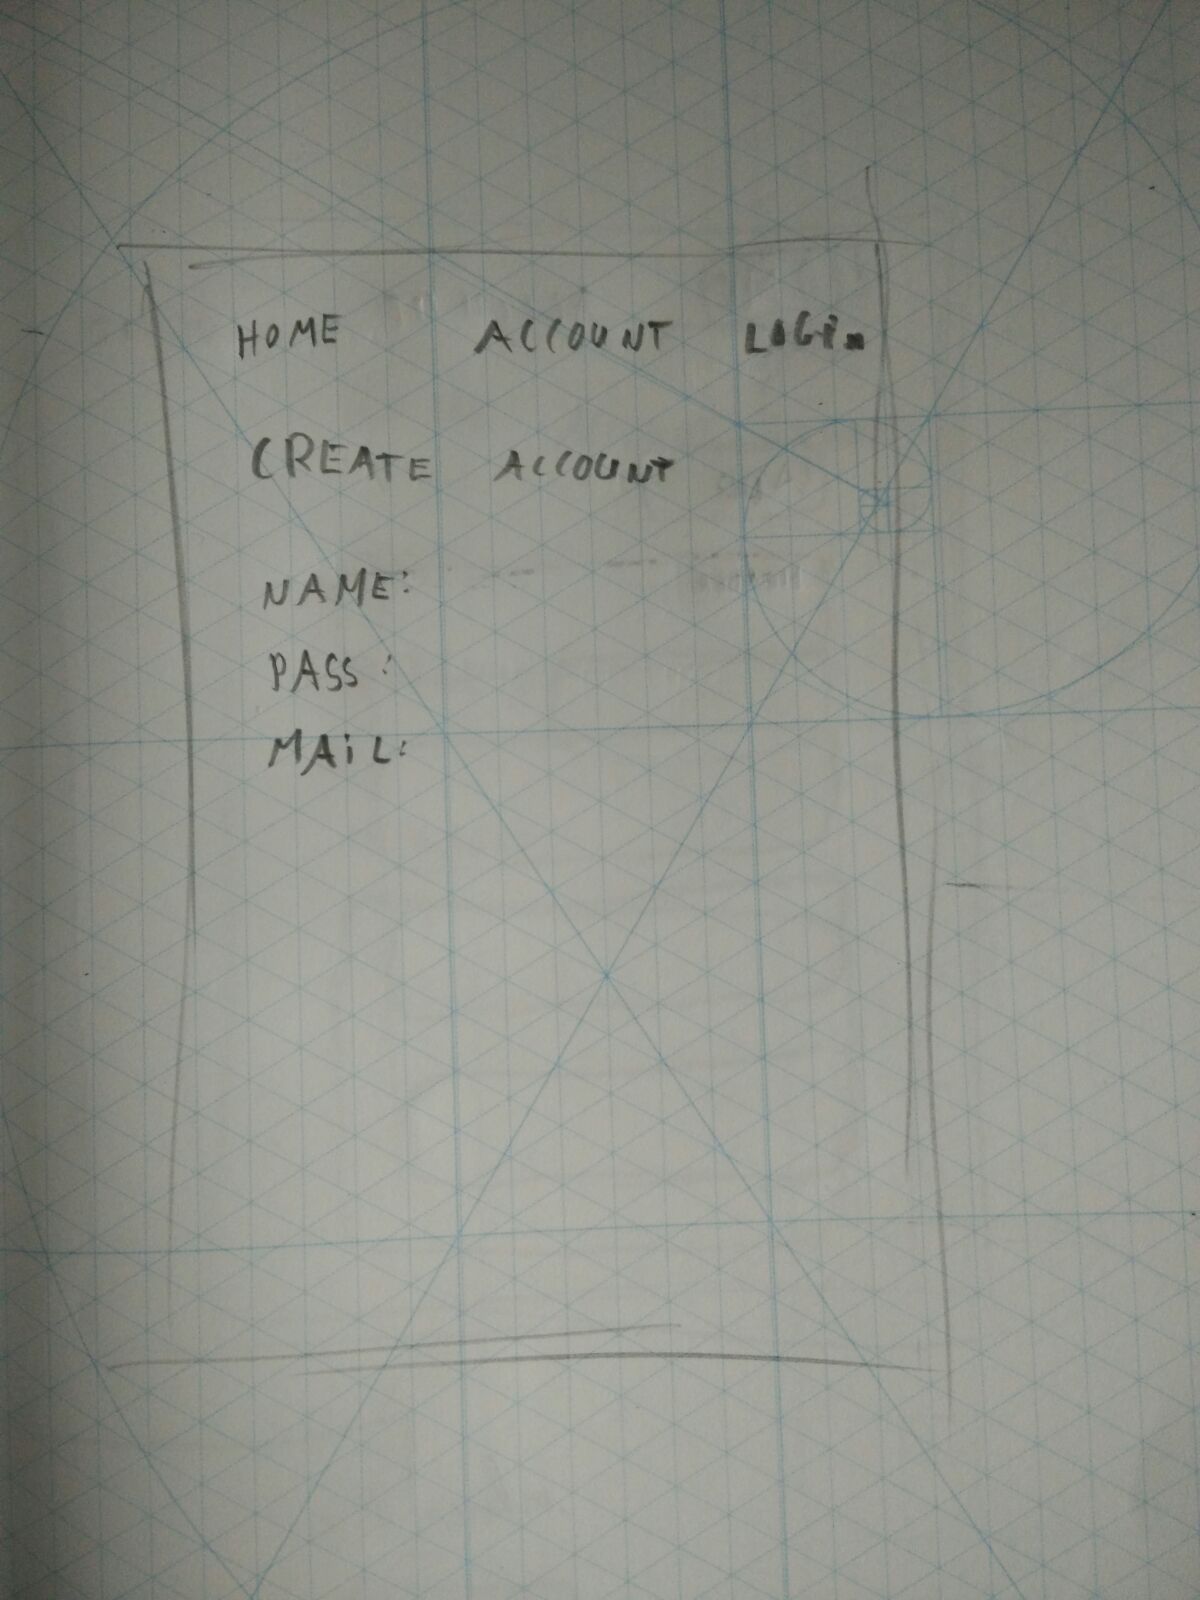 HOME ACCOUNT LOGiN
CREATE ACCOUNT
NAME:
PASS:
MAiL: